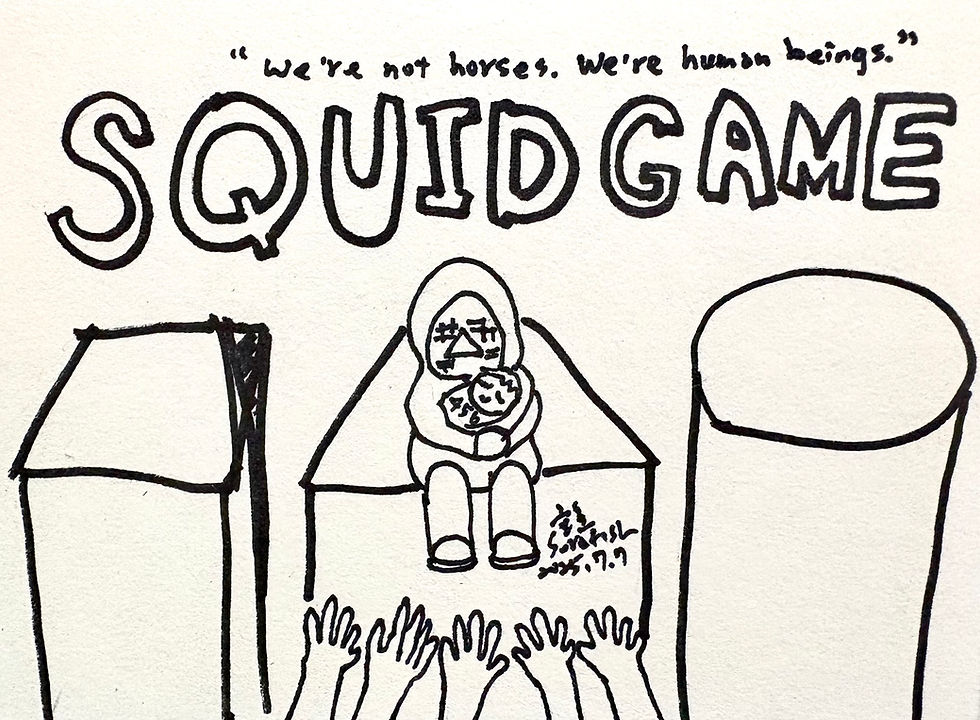 “ We're not horses. We're human beings.”
SQUID GAME
456
2025.7.7